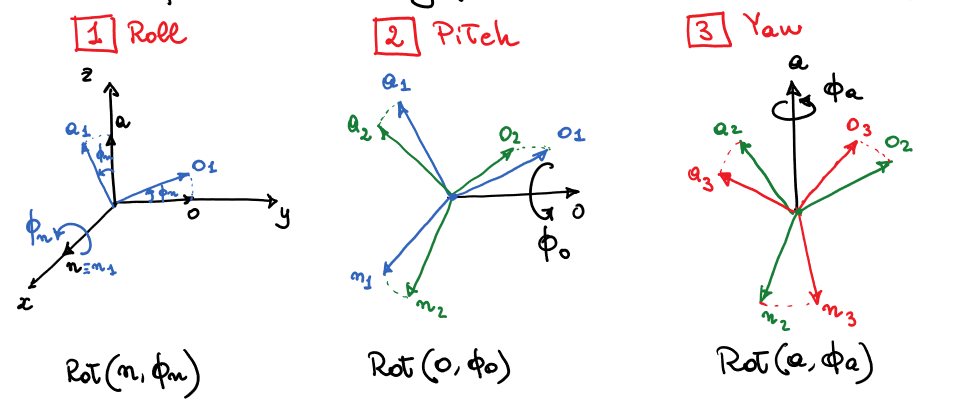 1 Roll
z
a1
a
ϕn
o1
ϕn
o
y
ϕn
n≡n1
x
Rot(n, ϕn)
2 Pitch
a1
a2
o2
o1
o
ϕo
n1
n2
Rot(o, ϕo)
3 Yaw
a
ϕa
a2
o3
o2
a3
n2
n3
Rot(a, ϕa)